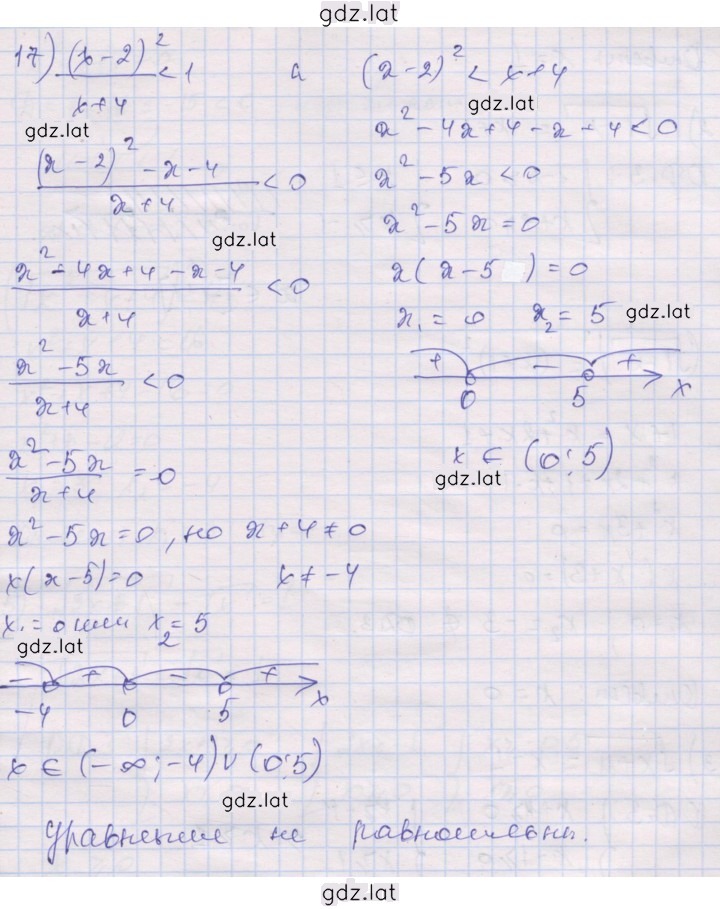 gdz.lat
17) (x-2)²/x+4 < 1 и (x-2)² < x+4
gdz.lat
gdz.lat
x² - 4x + 4 - x - 4 < 0
(x-2)² - x - 4/x+4 < 0
x² - 5x < 0
x² - 5x = 0
gdz.lat
x² - 4x + 4 - x - 4/x+4 < 0
x(x-5) = 0
x₁ = 0 x₂ = 5 gdz.lat
x² - 5x/x+4 < 0
+ - +
0 5 x
x² - 5x/x+4 = 0
x ∈ (0; 5)
gdz.lat
x² - 5x = 0, но x + 4 ≠ 0
x(x-5) = 0 x ≠ -4
x₁ = 0 или x₂ = 5
gdz.lat
- + - +
-4 0 5 x
x ∈ (-∞; -4) ∪ (0; 5)
gdz.lat
Уравнение не равносильны.
gdz.lat